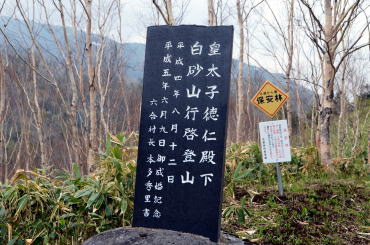 皇太子徳仁殿下
白砂山行啓登山
平成四年八月十二日
平成五年六月九日御成婚記念
六合村長本多秀里書
保安林